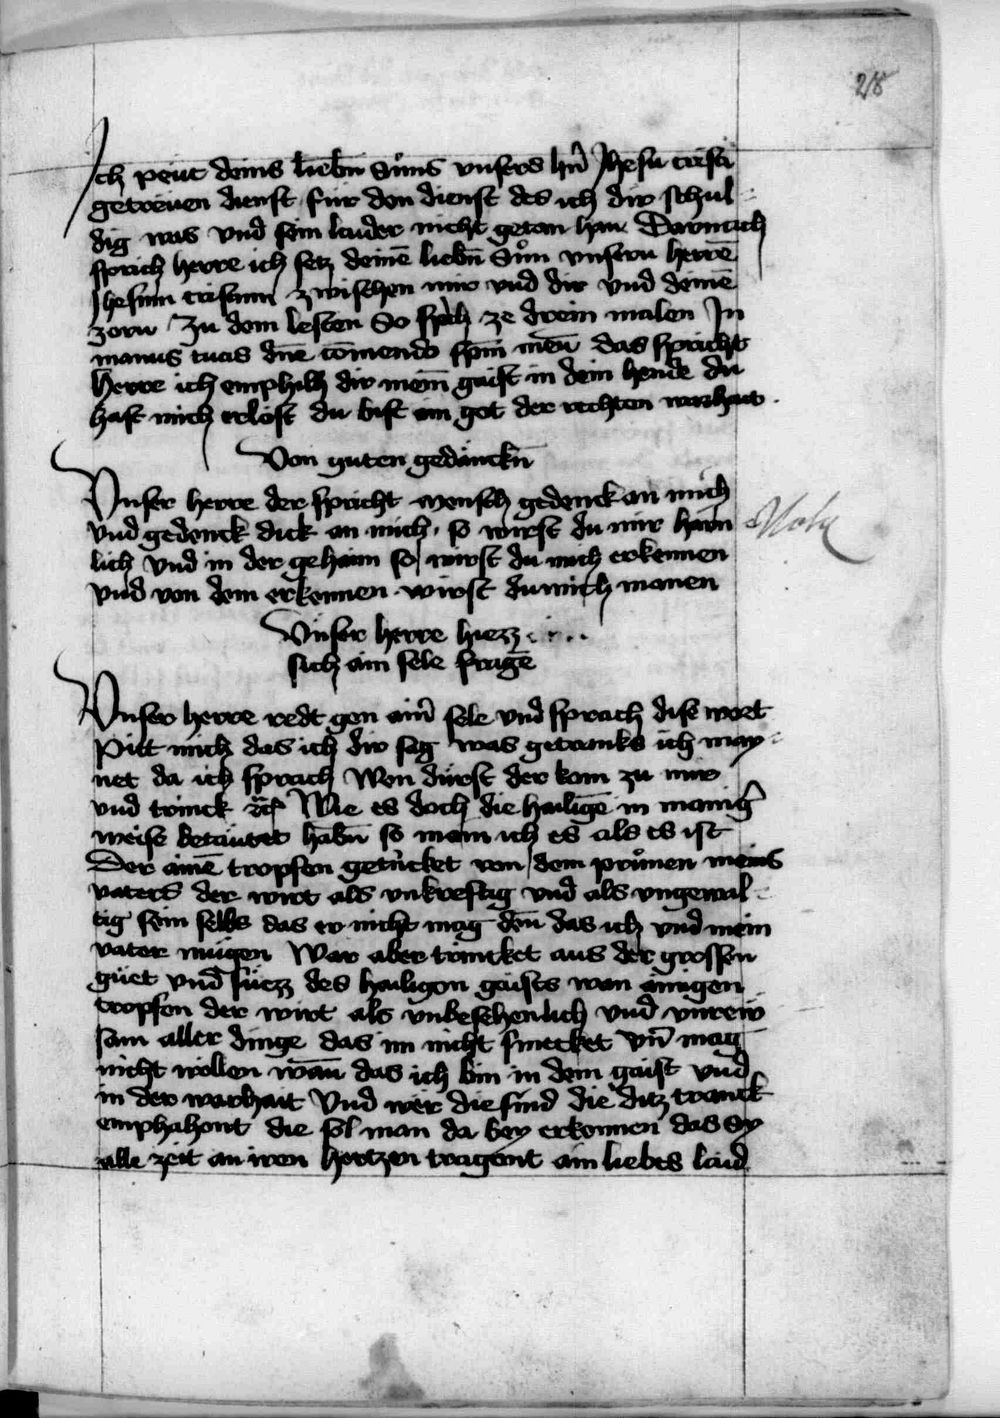 28
Ich peut deins liebn̄ Sůns vnsers hn̄ Jhesu cristi
getreuen dienst für den dienst des ich dir schul=
dig was vnd sein laider nicht getan han Darnach
sprich herre ich setz deinē liebn̄ Sůn vnsern herrē
Jhesum cristum zwischen mir vnd dir vnd deinē
zorn Zu dem lesten So sprich ze drein malen In
manus tuas dn̄e cōmendo sp̄m meū das spricht
Herre ich emphilh dir mein̄ gaist in dein hende du
hast mich erlöst du bist ain got der rechten warhait .
Von guten gedänckn̄
Vnser herre der spricht mensch gedenck an mich
vnd gedenck dick an mich, so wirst du mir haim
lich vnd in der gehaim so wirst du mich erkennen
vnd von dem erkennen wirst du mich manen
Nota
Vnser herre hiezz . . . .
sich ain sele fragē
Vnser herre redt gen ain̄ sele vnd sprach dise wort
Pitt mich das ich dir sag was getranks ich may=
net da ich sprach Wen dürst der kom zu mir
vnd trinck ꝛc̄ Wie es doch die hailigē in maniḡ
weise betäutet habn̄ so main ich es als es ist
Der ainē tropfen getrücket von dem průnen meins
vaters der wirt als vnkreftig vnd als vngewal=
tig sein selbs das er nicht mag den̄ das ich vnd mein
vater mügen Wär aber trincket aus der grossen
güet vnd süezz des hailigen gaists wan ainigen
tropfen der wirt als vnbesehenlich vnd vnrew
sam aller dinge das im nicht smecket vn̄ mag
nicht wöllen wān̄ das ich bin in dem gaist vnd
in der warhait Vnd wer die sind die ditz tranck
emphahent die sol man da bey erkennen das Sy
alle zeit an iren hertzen tragent ain liebes laid